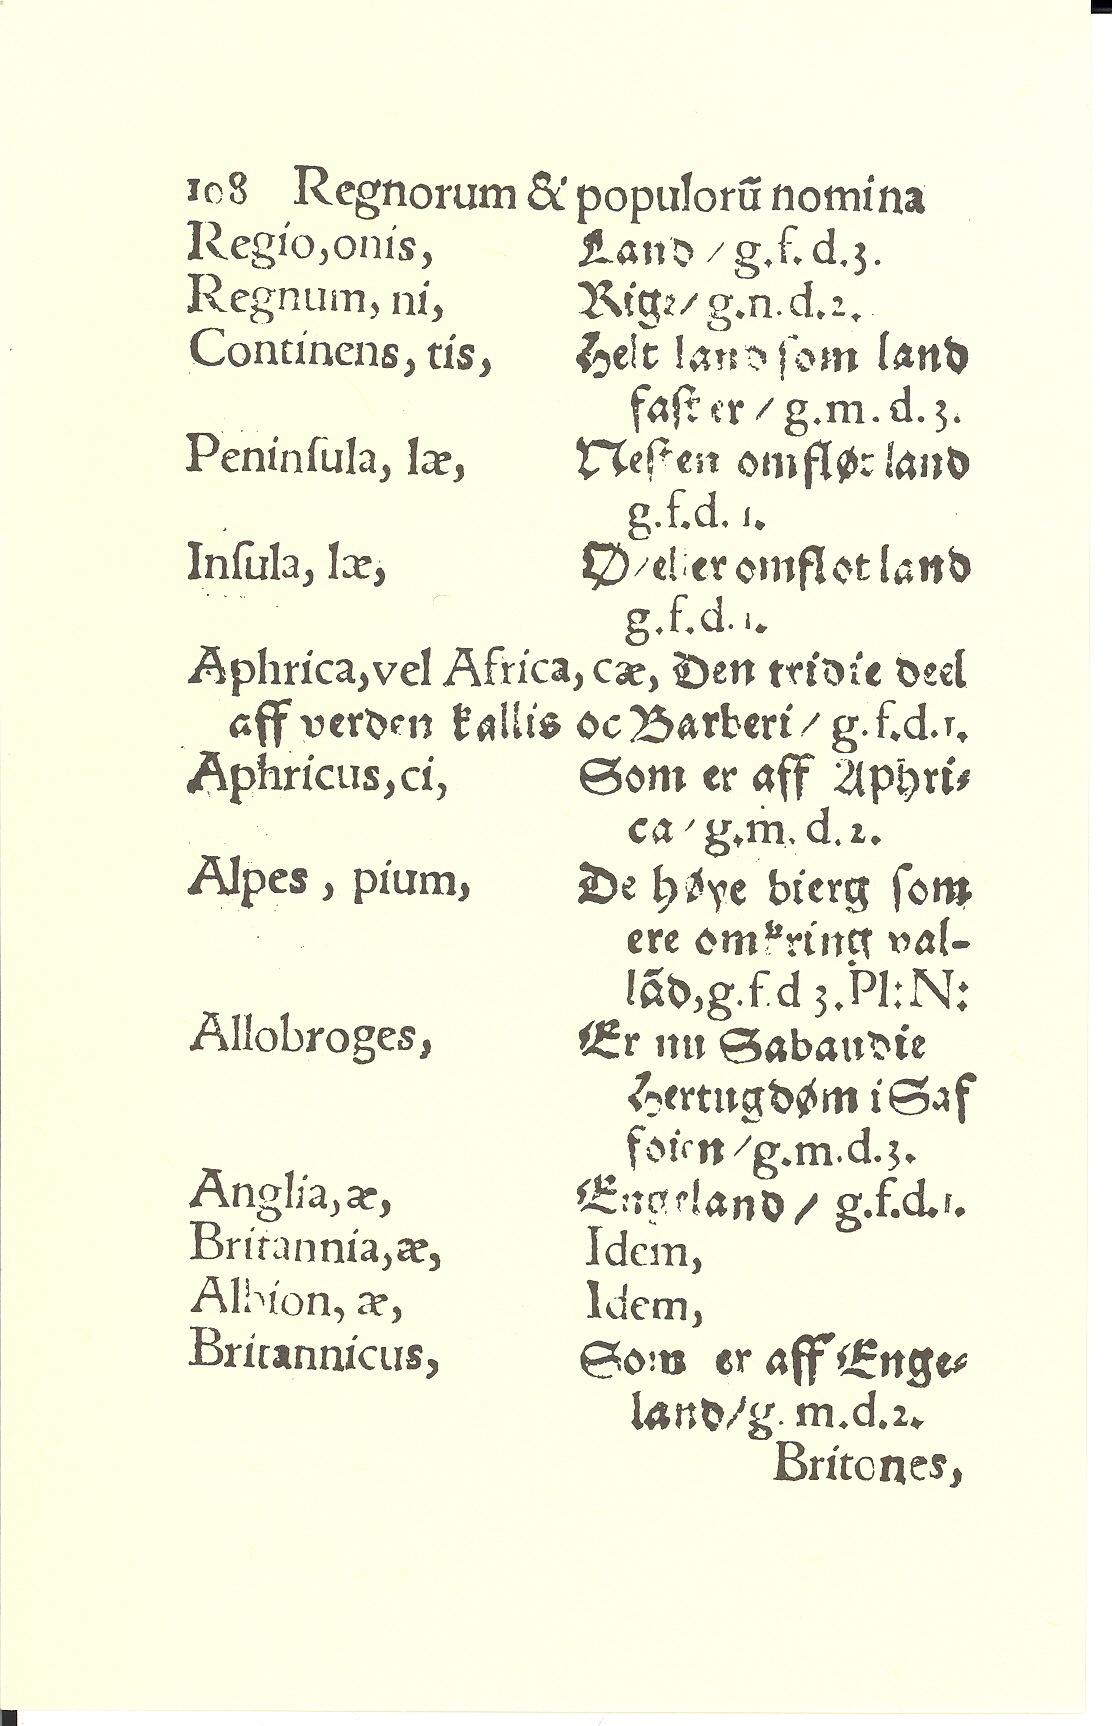 108 Regnorum & populorũ nomina
Regio, onis, Land / g.f.d.3.
Regnum, ni, Rige / g.n.d.2.
Continens, tis, Helt land ſom land
faſt er / g.m.d.3.
Peninſula, læ, Neſten omfløt land
g.f.d.1.
Inſula, læ, Ø / eller omflot land
g.f.d.1.
Aphrica, vel Africa, cæ, Den tridie deel
aff verden kallis oc Barberi / g.f.d.1.
Aphricus, ci, Som er aff Aphri-
ca / g.m.d.2.
Alpes, pium, De høye bierg ſom
ere omkring val-
lãd, g.f.d 3. Pl: N:
Allobroges, Er nu Sabaudie
Hertugdøm i Saf
foien / g.m.d.3.
Anglia, æ, Engeland / g.f.d.1.
Britannia, æ, Idem,
Albion, æ, Idem,
Britannicus, Som er aff Enge-
land / g.m.d.2.
Britones,